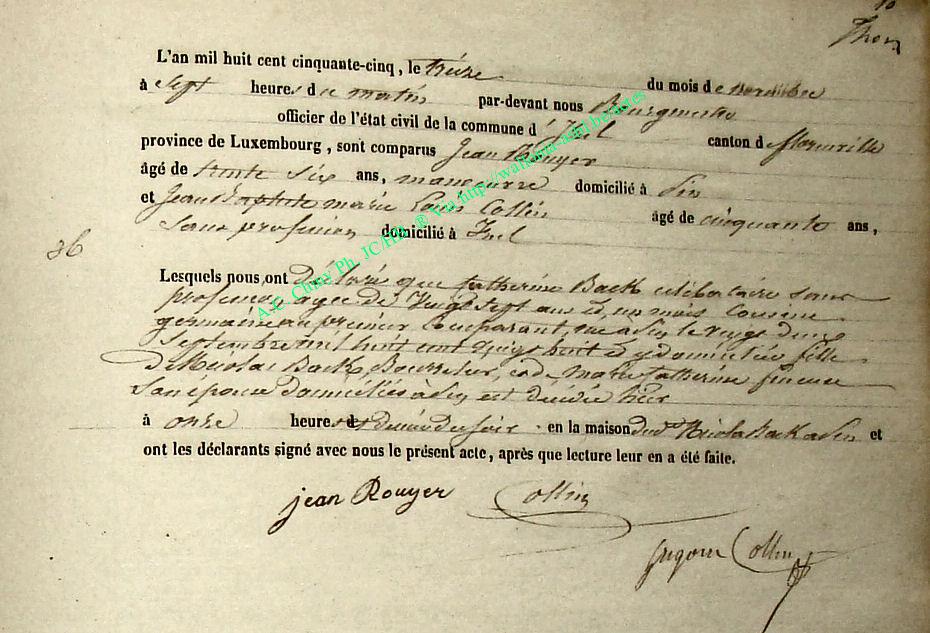 10
L'an mil huit cent cinquante-cinq, le treize du mois de novembre
à sept heures du matin par-devant nous Bourgmestre
officier de l'état civil de la commune d'Izel canton de florenville
province de Luxembourg, sont comparus Jean Rouyer
âgé de trente six ans, manoeuvre domicilié à Pin
et Jean Baptiste marie Louis Collin âgé de cinquante ans,
Sans profession domicilié à Izel
36
Lesquels nous ont déclaré que Catherine Back célibataire sans
profession agée de Vingt Sept ans et, un mois Cousine
germaine au premier Comparant, née à Pin le vingt deux
Septembre mil huit cent Vingt huit et y domiciliée fille
de Nicolas Back, Bourrelier, et de Marie Catherine
Son épouse domiciliés à Pin est décédée hier
à onze heures et demie du soir en la maison dud Nicolas Back à Pin et
ont les déclarants signé avec nous le présent acte, après que lecture leur en a été faite.
jean Rouyer Collin
Gregoire Collin
A.E. Cluny Ph. JC/HB. ® Via http://wallonia-asbl.be/notes